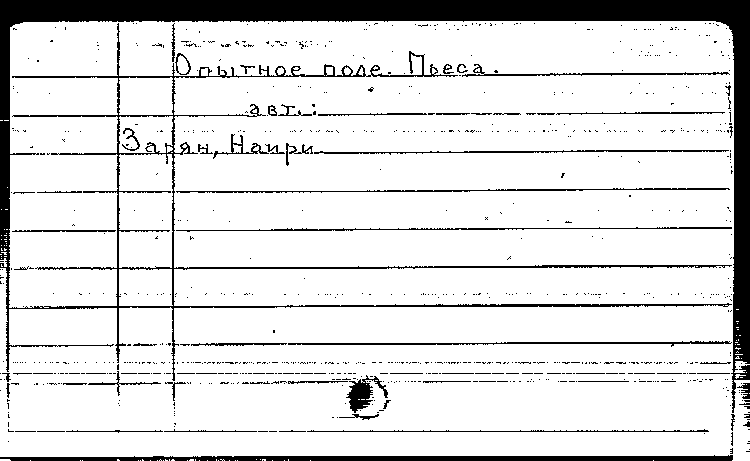 Опытное поле. Пьеса.
авт.:
Зарян, Наири.